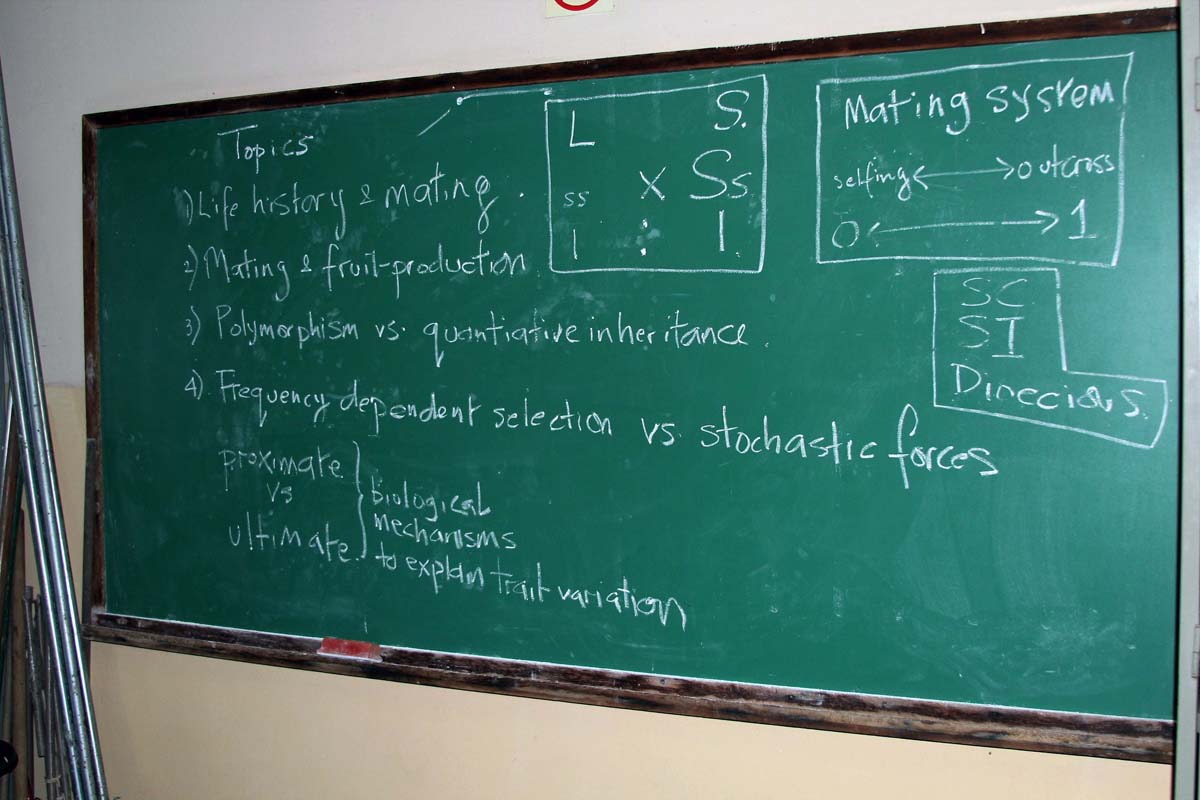 Topics
1) Life history & mating.
2) Mating & fruit-production
3) Polymorphism vs. quantiative inheritance.
4) Frequency dependent selection vs. stochastic forces
proximate
vs
ultimate.
biological
mechanisms
to explain trait variation
L S.
ss x Ss
1 : 1.
Mating system
selfing <-> outcross
0 <-> 1
SC
SI
Dioecious.